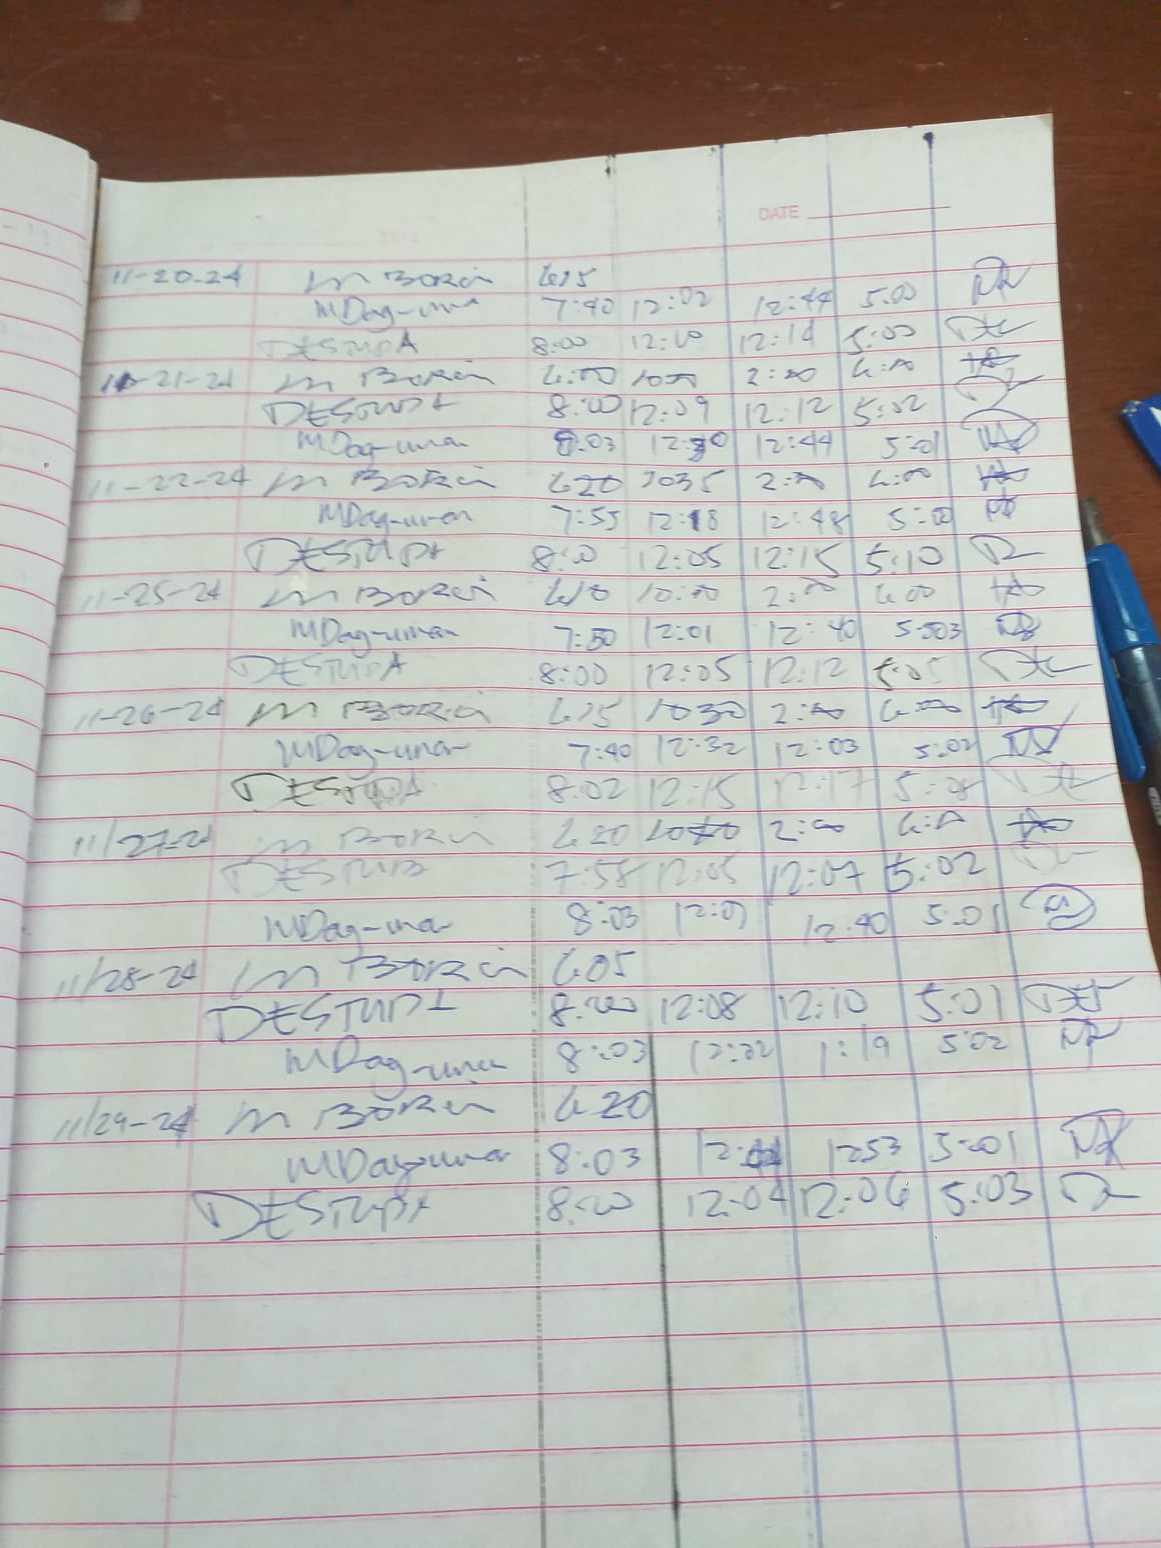 DATE
11-20-24 M Borci 6:15
MDag-uma 7:40 12:02 12:44 5:00
DESTUPA 8:00 12:10 12:14 5:00
11-21-24 M Borci 6:00 1000 2:00 6:00
DESTUPA 8:00 12:09 12:12 5:02
MDag-uman 8:03 12:30 12:44 5:01
11-22-24 M Borci 620 1035 2:00 6:00
MDag-uman 7:55 12:18 12:48 5:00
DESTUPA 8:00 12:05 12:15 5:10
11-25-24 M Borci 610 10:00 2:00 6:00
MDag-uman 7:50 12:01 12:40 5:03
DESTUPA 8:00 12:05 12:12 5:05
11-26-24 M Borci 615 1030 2:00 6:00
MDag-uman 7:40 12:32 12:03 5:02
DESTUPA 8:02 12:15 12:17
11/27-24 M Borci 620 2:00 6:00
DESTUPA 7:58 12:05 12:07 5:02
MDag-uma 8:03 12:40 5:01
11/28-24 M Borci 605
DESTUPA 8:00 12:08 12:10 5:01
MDag-uma 8:03 12:22 1:19 5:02
11/29-24 M Borci 620
MDag-uma 8:03 1253 5:01
DESTUPA 8:00 12:04 12:06 5:03